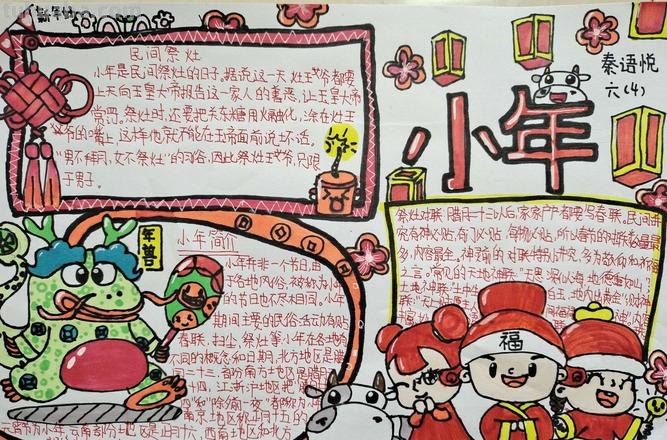 小年
秦语悦
六(4)
民间祭灶
小年是民间祭灶的日子。据说这一天灶王爷都要
上天向玉皇大帝报告这一家人的善恶,让玉皇大帝
赏罚。祭灶时,还要把关东糖用火融化,涂在灶王
爷的嘴上,这样他就不能在玉帝面前说坏话。
"男不拜月,女不祭灶"的习俗,因此祭灶王爷,只限
于男子。
年兽
小年简介
小年并非一个节日,由
于各地风俗,被称为小年
的节日也不尽相同。小年
期间主要的民俗活动有贴
春联、扫尘、祭灶等小年在各地有
不同的概念和日期,北方地区是腊
月二十三,部分南方地区是腊月
二十四,江浙沪地区把
四"和"除夕前一夜"都称为小年
南京地区称正月十五的
元宵节为小年,云南部分地区是正月十六,西南地区和北方
祭灶对联 腊月二十三以后,家家户户都要写春联。民间讲
究有神必贴,有门必贴,每物必贴,所以春节的对联数量最
多,内容最全。神灵前的对联特别讲究,多为敬仰和祈福
之言。常见的天地神联:"天恩深似海,地德重如山";
土地神联:"土中生白玉,地内出黄金";财神
福